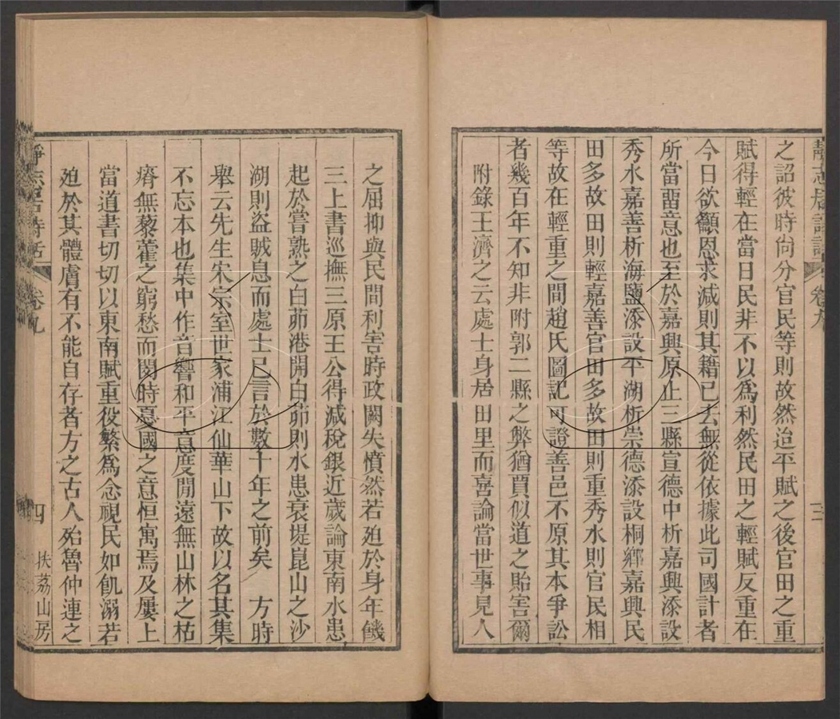 之詔彼時尙分官民等則故然迨平賦之後官田之重
賦得輕在當日民非不以爲利然民田之輕賦反重在
今日欲籲恩求減則其籍已去無從依據此司國計者
所當畱意也至於嘉興原止三縣宣德中析嘉興添設
秀水嘉善析海鹽添設平湖析崇德添設桐鄉嘉興民
田多故田則輕嘉善官田多故田則重秀水則官民相
等故在輕重之間趙氏圖記可證善邑不原其本爭訟
者幾百年不知非附郭二縣之弊猶賈似道之貽害爾
附錄王濟之云處士身居田里而喜論當世事見人
之屈抑與民間利害時政闕失憤然若廹於身年饑
三上書巡撫三原王公得減稅銀近歲論東南水患
起於嘗熟之白茆港開白茆則水患衰堤崑山之沙
湖則盜賊息而處士已言於數十年之前矣 方時
舉云先生宋宗室世家浦江仙華山下故以名其集
不忘本也集中作音響和平意度閒遠無山林之枯
瘠無藜藿之窮愁而閔時憂國之意恒寓焉及屢上
當道書切切以東南賦重役繁爲念視民如飢溺若
廹於其體膚有不能自存者方之古人殆魯仲連之
靜志居詩話 卷九 四 扶荔山房